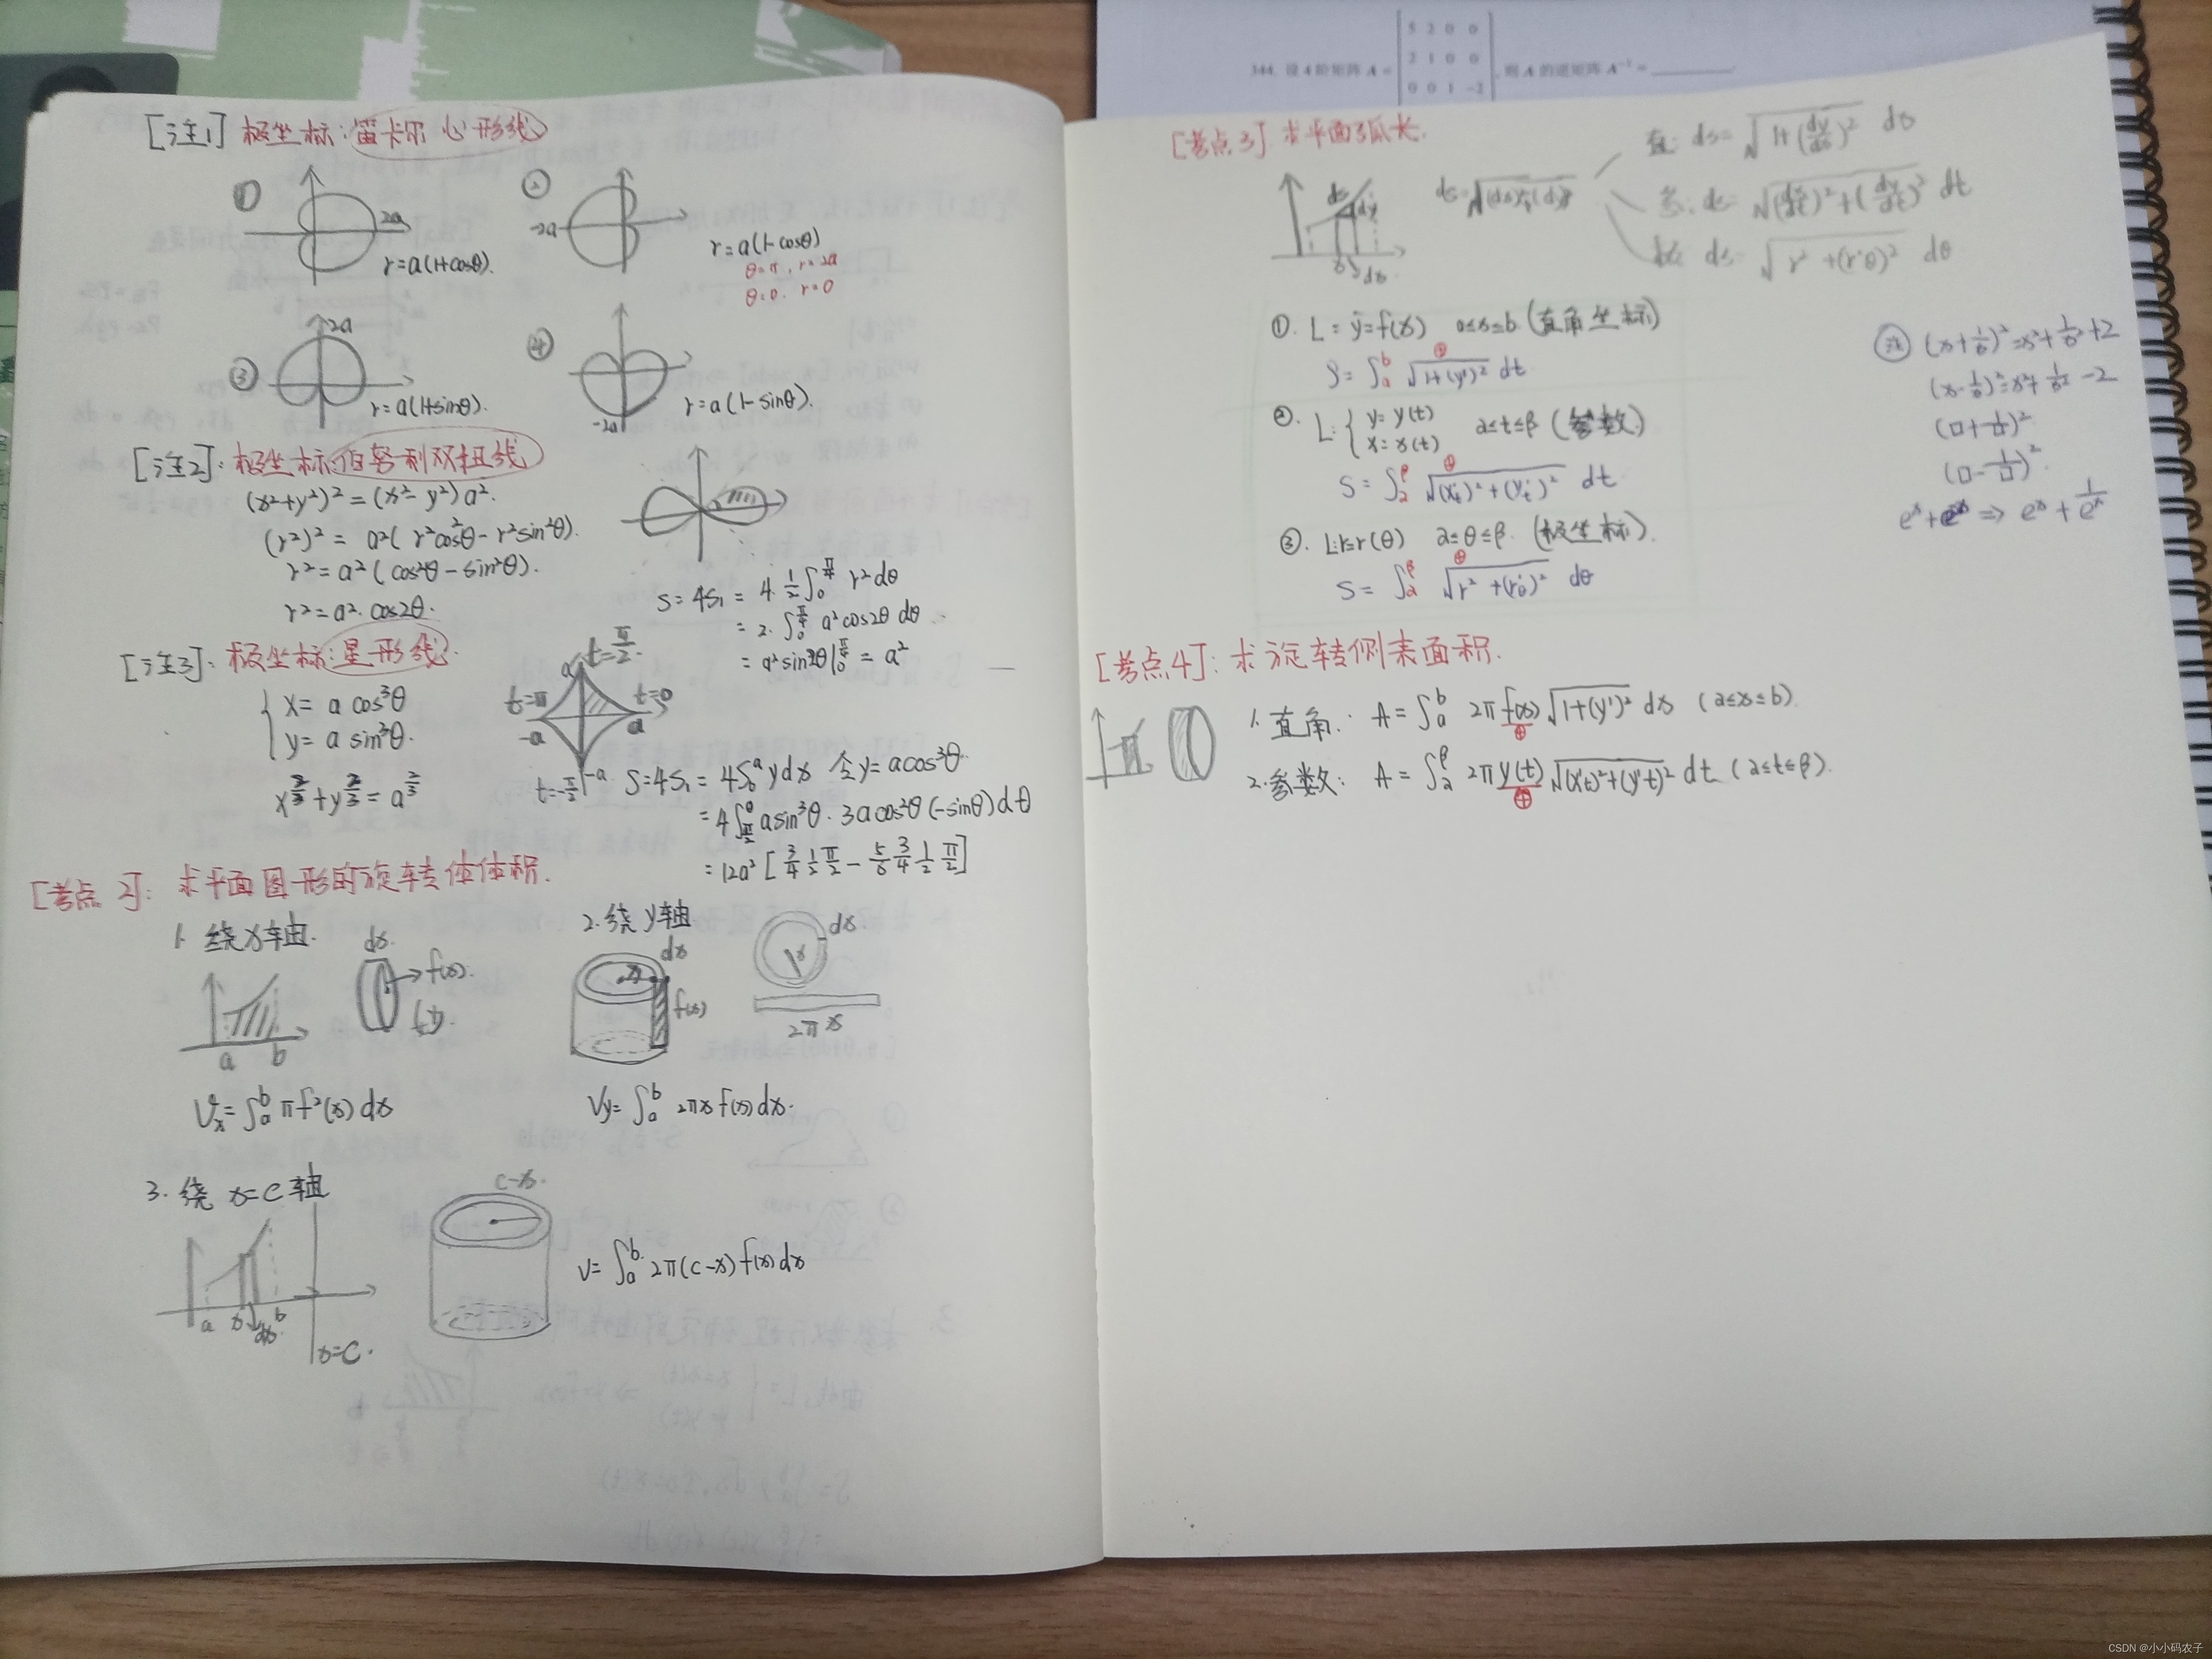 [注1] 极坐标:笛卡尔心形线
① 2a
r=a(1+cosθ).
② -2a
r=a(1-cosθ)
θ=π, r=2a
θ=0. r=0
③ 2a
r=a(1+sinθ).
④ -2a
r=a(1-sinθ).
[注2]: 极坐标:伯努利双扭线
(x²+y²)²=(x²-y²)a².
(r²)² = a²(r²cos²θ-r²sin²θ).
r²=a²(cos²θ-sin²θ).
r²=a².cos2θ.
S=4S₁ = 4.½∫₀^{π/4} r²dθ
= 2.∫₀^{π/4} a²cos2θ dθ
= a²sin2θ|₀^{π/4} = a²
[注3]: 极坐标:星形线.
{ x= a cos³θ
y= a sin³θ.
x^{2/3}+y^{2/3}=a^{2/3}
a t=π/2.
t=π t=0
-a a
t=-π/2 -a
S=4S₁ = 4∫₀^a ydx 令y=acos³θ.
=4∫_{π/2}^0 asin³θ·3acos²θ(-sinθ)dθ
=12a²[3/4 1/2 π/2 - 5/6 3/4 1/2 π/2]
[考点2]: 求平面图形的旋转体体积.
1. 绕x轴.
a b
dx.
f(x).
(y).
Vx=∫_a^b πf²(x)dx
2.绕y轴
dx
x
f(x)
dx.
x
2πx
Vy=∫_a^b 2πx f(x)dx.
3. 绕 x=C轴
a x dx b
x=C.
c-x.
V=∫_a^b 2π(c-x)f(x)dx
344. 设4阶矩阵 A=
5 2 0 0
2 1 0 0
0 0 1 -2
,则 A 的逆矩阵 A⁻¹=________.
[考点3]. 求平面弧长.
ds dy
x dx
ds=√(dx)²+(dy)²
直: ds=√1+(dy/dx)² dx
参: ds=√(dx/dt)²+(dy/dt)² dt
极: ds=√r²+(r'θ)² dθ
①. L: y=f(x) a≤x≤b (直角坐标)
S=∫_a^b √1+(y')² dt
②. L:{ y=y(t)
x=x(t) α≤t≤β (参数)
S=∫_α^β √(x't)²+(y't)² dt
③. L:r=r(θ) α≤θ≤β. (极坐标).
S=∫_α^β √r²+(r'θ)² dθ
注 (x+1/x)²=x²+1/x²+2
(x-1/x)²=x²+1/x²-2
(□+1/□)²
(□-1/□)².
e^x+e^{-x} ⇒ e^x+1/e^x
[考点4]: 求旋转侧表面积.
1. 直角: A=∫_a^b 2πf(x)√1+(y')² dx (a≤x≤b)
2.参数: A=∫_α^β 2πy(t)√(x't)²+(y't)² dt (α≤t≤β).
CSDN @小小码农子